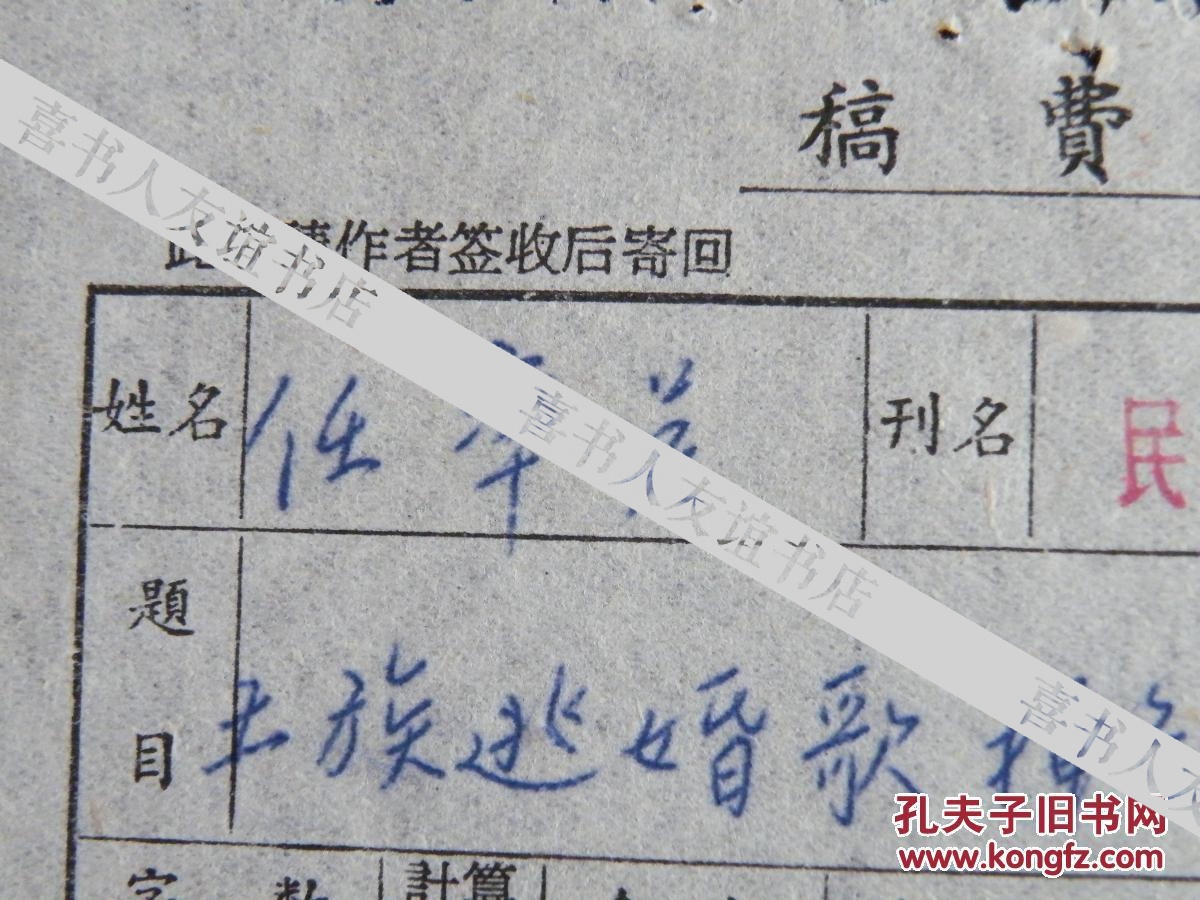 稿 費
作者签收后寄回
姓名 任 刊名 民
題目 土族逃婚歌
字 数 計算
喜书人友谊书店
喜书人友谊书店
喜书人友
孔夫子旧书网
www.kongfz.com